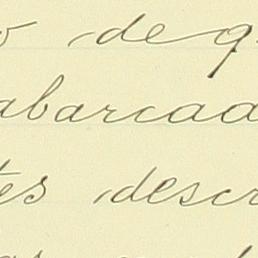 o de q
abarcad
tes descr